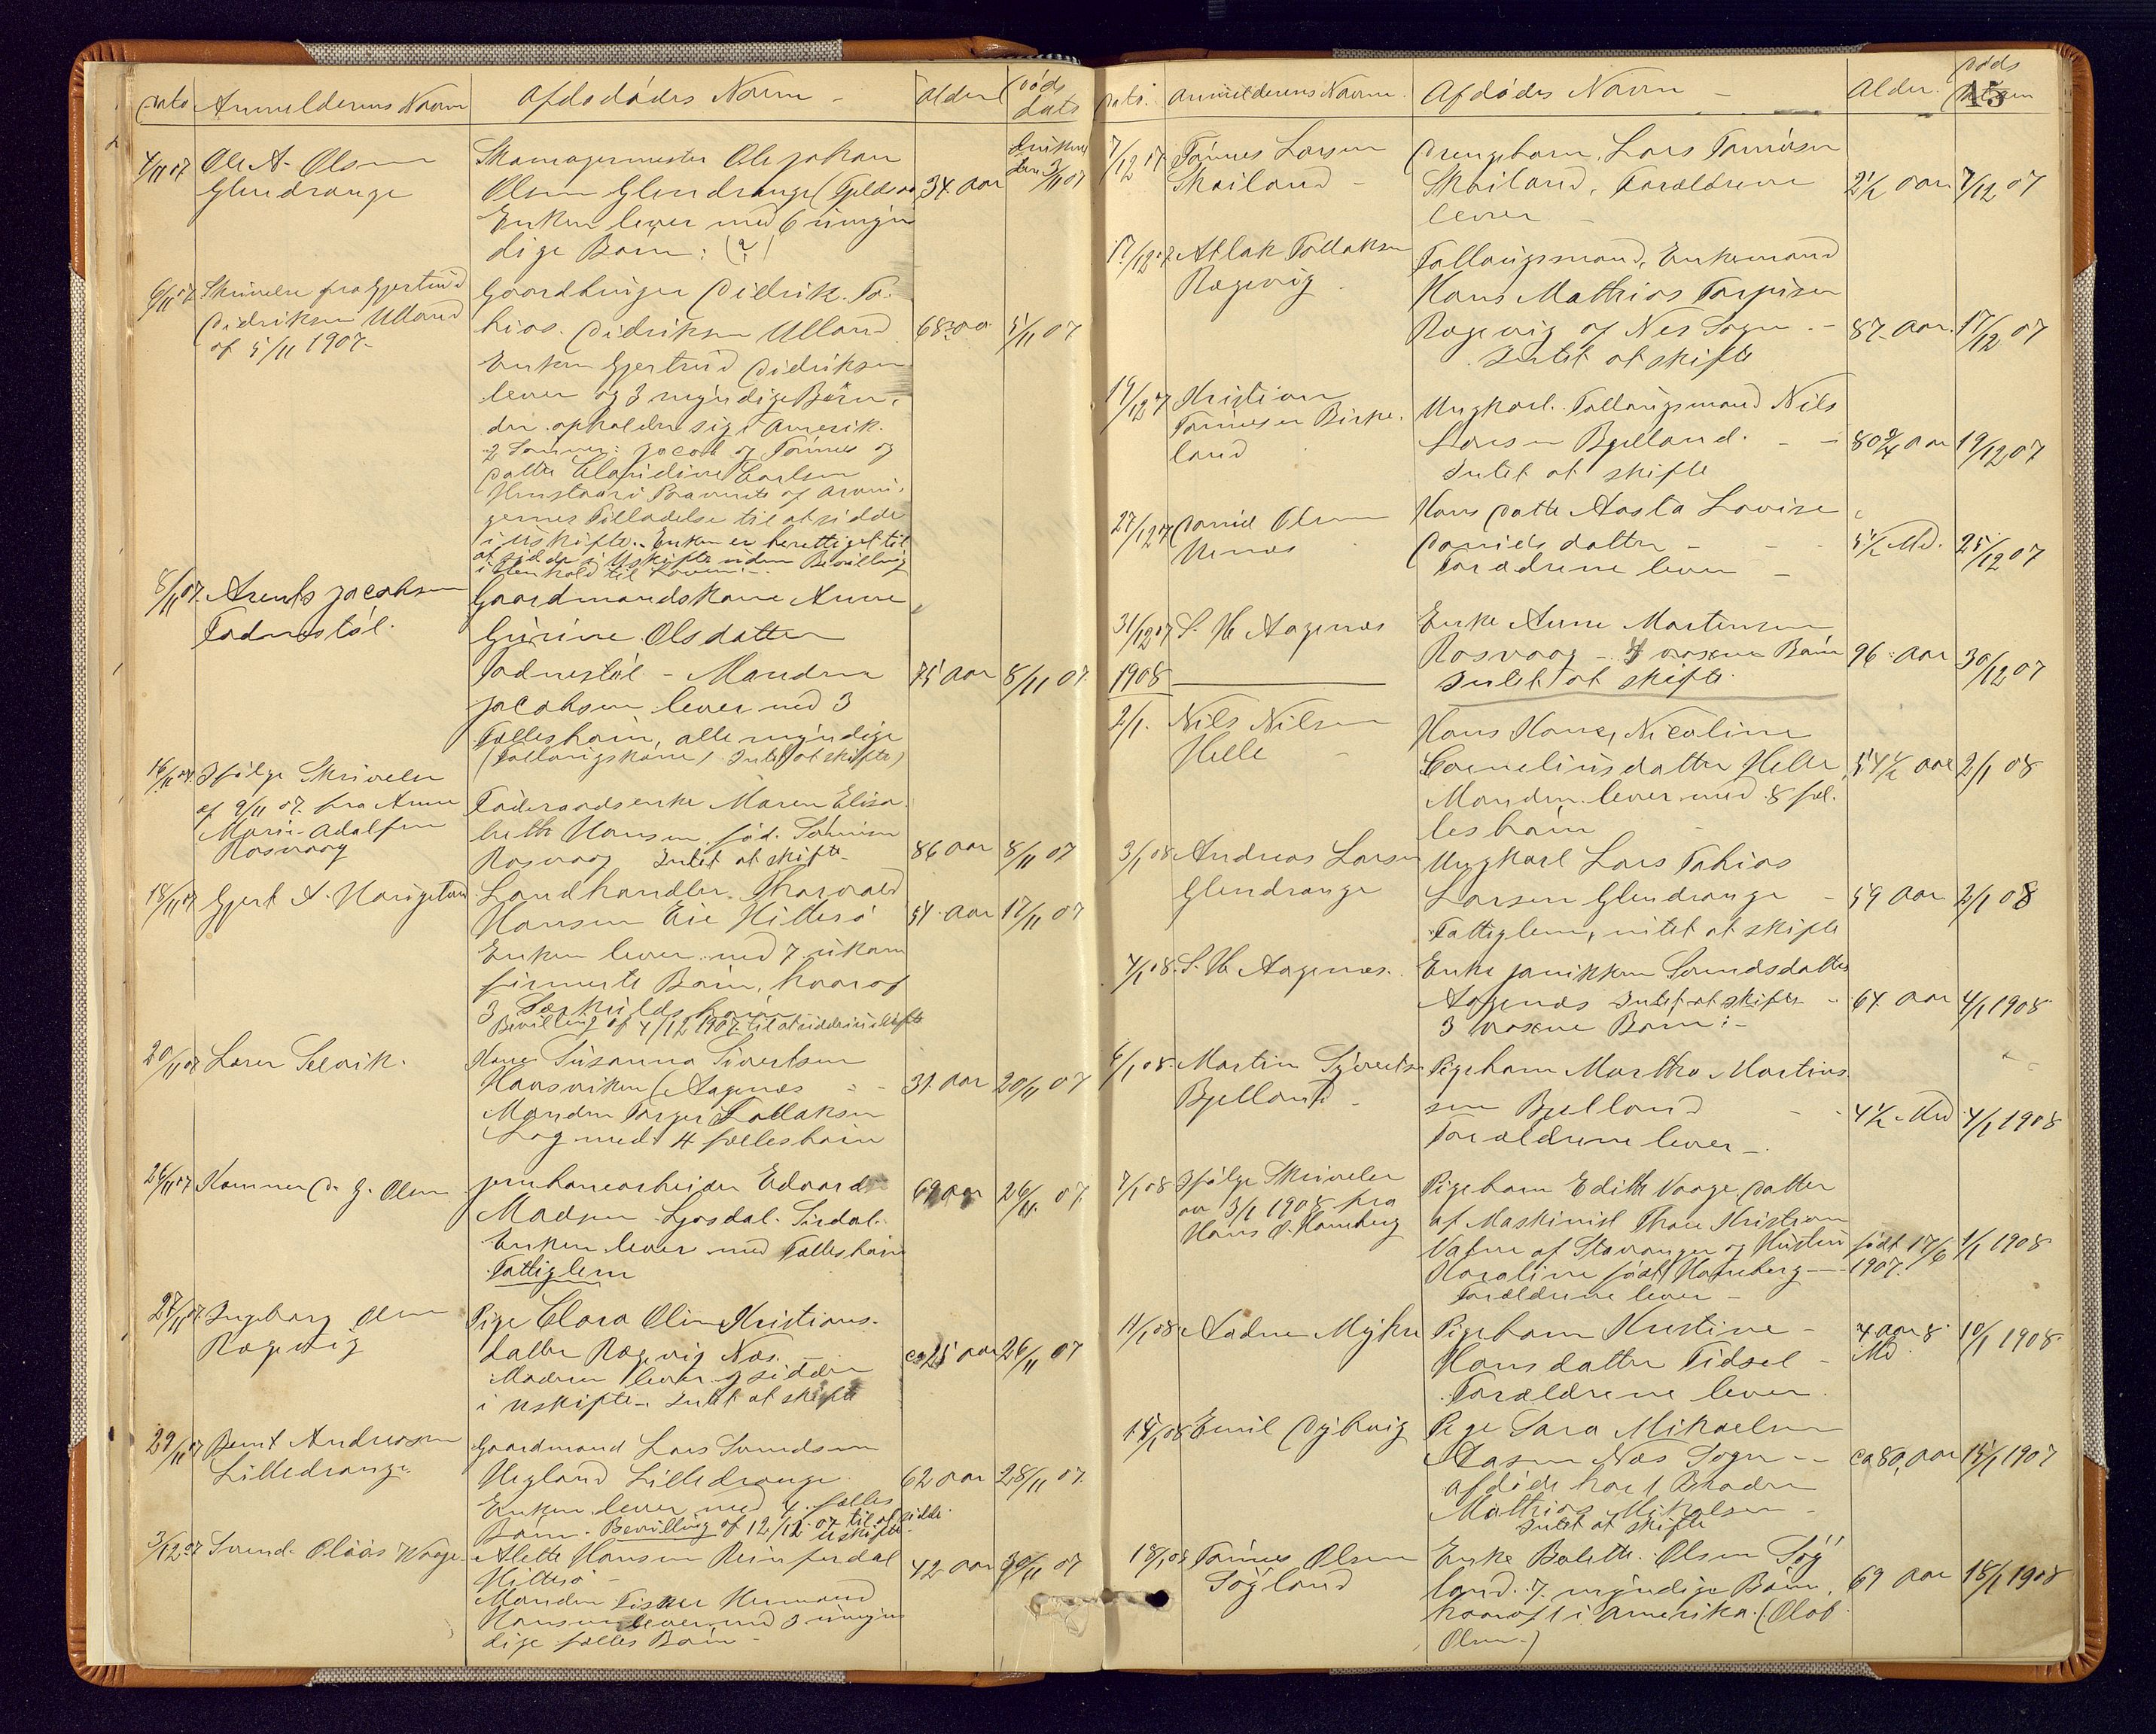 Dato Anmelderens Navn Afdødes Navn Alder Døds dato
4/11 07 Ole A. Olsen Skomagermester Ole Johan
Glendrange Olsen Glendrange (Fjeldsaa) 34 aar 3/11 07
Enken lever med 6 umyn
dige Børn: (?)
6/11 07 Skrivelse fra Gjertrud Gaardbruger Didrik To.
Didriksen Ulland bias. Didriksen Ulland 68 aar 5/11 07
af 5/11 1907.
Enken Gjertrud Didriksen
lever og 3 myndige Børn,
der opholder sig i Amerik.
2 Sønner: Jacob og Tønnes og
Datter Claudine Carlsen
gernes Tilladelse til at sidde
i Uskifte. Enken er berettiget til
at sidde i Uskifte uden Bevilling
i Henhold til Loven.
8/11 07. Arents Jacobsen Gaardmandskone Anne
Fadnestøl. Gurine Olsdatter
Fadnestøl - Manden 75 aar 8/11 07
Jacobsen lever med 3
Fællesbørn, alle myndige
(Fattigskone) Intet at skifte)
Ifølge Skrivelse
af 9/11 07. fra Anne Føderaadsenke Maren Elisa
Marie Adolfsen beth Hansen, fød. Tønnesen
Rosvaag Rosvaag Intet at skifte 86 aar 8/11 07
18/11 07 Gjert A. Haugeland Landhandler Thorvald
Hansen Eie Hitterø 54 aar 17/11 07
Enken lever med 7 ukon
firmerte Børn, hvoraf
3 Særkuldsbørn
Bevilling af 4/12 1907 til at sidde i uskifte
20/11 07 Lærer Selvik. Kone Susanna Sivertsen
Hansviken (Aagenæs 31 aar 20/11 07
Manden Torger Tollaksen
og med 4 fællesbørn
26/11 07 Kommer D. G. Olsen Jernbanearbeider Edvard
Madsen Ljosdal. Sirdal. 69 aar 26/11 07.
Enken lever med Fællesbørn
Fattiglem
27/11 07. Ingeborg Olsen Pige Clara Oline Kristians-
Rægevig datter Rægevig Næs. ca 25 aar 26/11 07
Moderen lever og sidder
i uskifte. Intet at skifte
29/11 07 Bernt Andreassen Gaardmand Lars Svendsen
Lilledrange Hegland Lilledrange 62 aar 28/11 07.
Enken lever med 4 fælles
Børn. Bevilling af 12/12 07 til at sidde
i uskifte.
3/12 07 Svend Olaus Waage Alette Hansen Reinferdal
Hitterø 42 aar 30/11 07
Manden Fisker Hermand
Hansen lever med 3 umyn
dige fælles Børn

15
Dato. Anmelderens Navn. Afdødes Navn Alder. Døds Datoen
7/12 07 Tønnes Larsen Drengebarn, Lars Tønnesen
Skailand Skailand, Forældrene 2 1/2 aar 7/12 07
lever
17/12 07 Atlak Tollaksen Fattigsmand, Enkemand
Rægevig Hans Mathias Torgisen
Rægevig af Nes Sogn. 87 aar. 17/12 07
Intet at skifte
19/12 07 Kristian
Tønnesen Birke- Ungkarl. Fattigsmand Nils
land Larsen Bjelland. 80 3/4 aar 19/12 07
Intet at skifte
27/12 07 Daniel Olsen Hans Datter Aasta Lovise
Danielsdatter 5 1/2 Md. 25/12 07
Forældrene lever
31/12 07 S. H. Aagenæs Enke Anne Martinsen
Rosvaag - 4 voxne Børn 96 aar 30/12 07
Intet at skifte
1908
2/1. Nils Nilsen Hans Kone, Nicoline
Helle Corneliusdatter Helle 54 1/2 aar 2/1 08
Manden lever med 8 fæl.
lesbørn
3/1 08 Andreas Larsen Ungkarl Lars Tobias
Glendrange Larsen Glendrange 59 aar 2/1 08
Fattiglem, intet at skifte
4/1 08. S. H. Aagenæs. Enke Janikken Svendsdatter
Aagenæs Intet at skifte 64 aar 4/1 1908
3 voxne Børn:-
6/1 08. Martin Syvertsen Pigebarn Martha Martins
Bjelland sen Bjelland 4 1/2 Md 4/1 1908
Forældrene lever
7/1 08 Ifølge Skrivelse Pigebarn Edith Vaage Datter
av 3/1 1908 fra af Maskinist Thore Kristian
Hans P. Haneberg Vatne af Stavanger og Hustru født 17/6 1/1 1908
Karoline født Haneberg 1907.
Forældrene lever
11/1 08 Aadne Mykre Pigebarn Kristine 4 aar 8 Md. 10/1 1908
Hansdatter Fidsel
Forældrene lever.
15/1 08 Emil Dybvig Pige Sara Mikaelsen
Aasen Næs Sogn ca 80 aar 15/1 1907
afdøde har 1 Broder
Mathias Mikalsen
Intet at skifte
18/1 08 Tønnes Olsen Enke Bolette Olsen Søy
Søyland land. 7 myndige Børn, 69 aar 18/1 1908
hvoraf 1 i Amerika. (Olof
Olsen.)